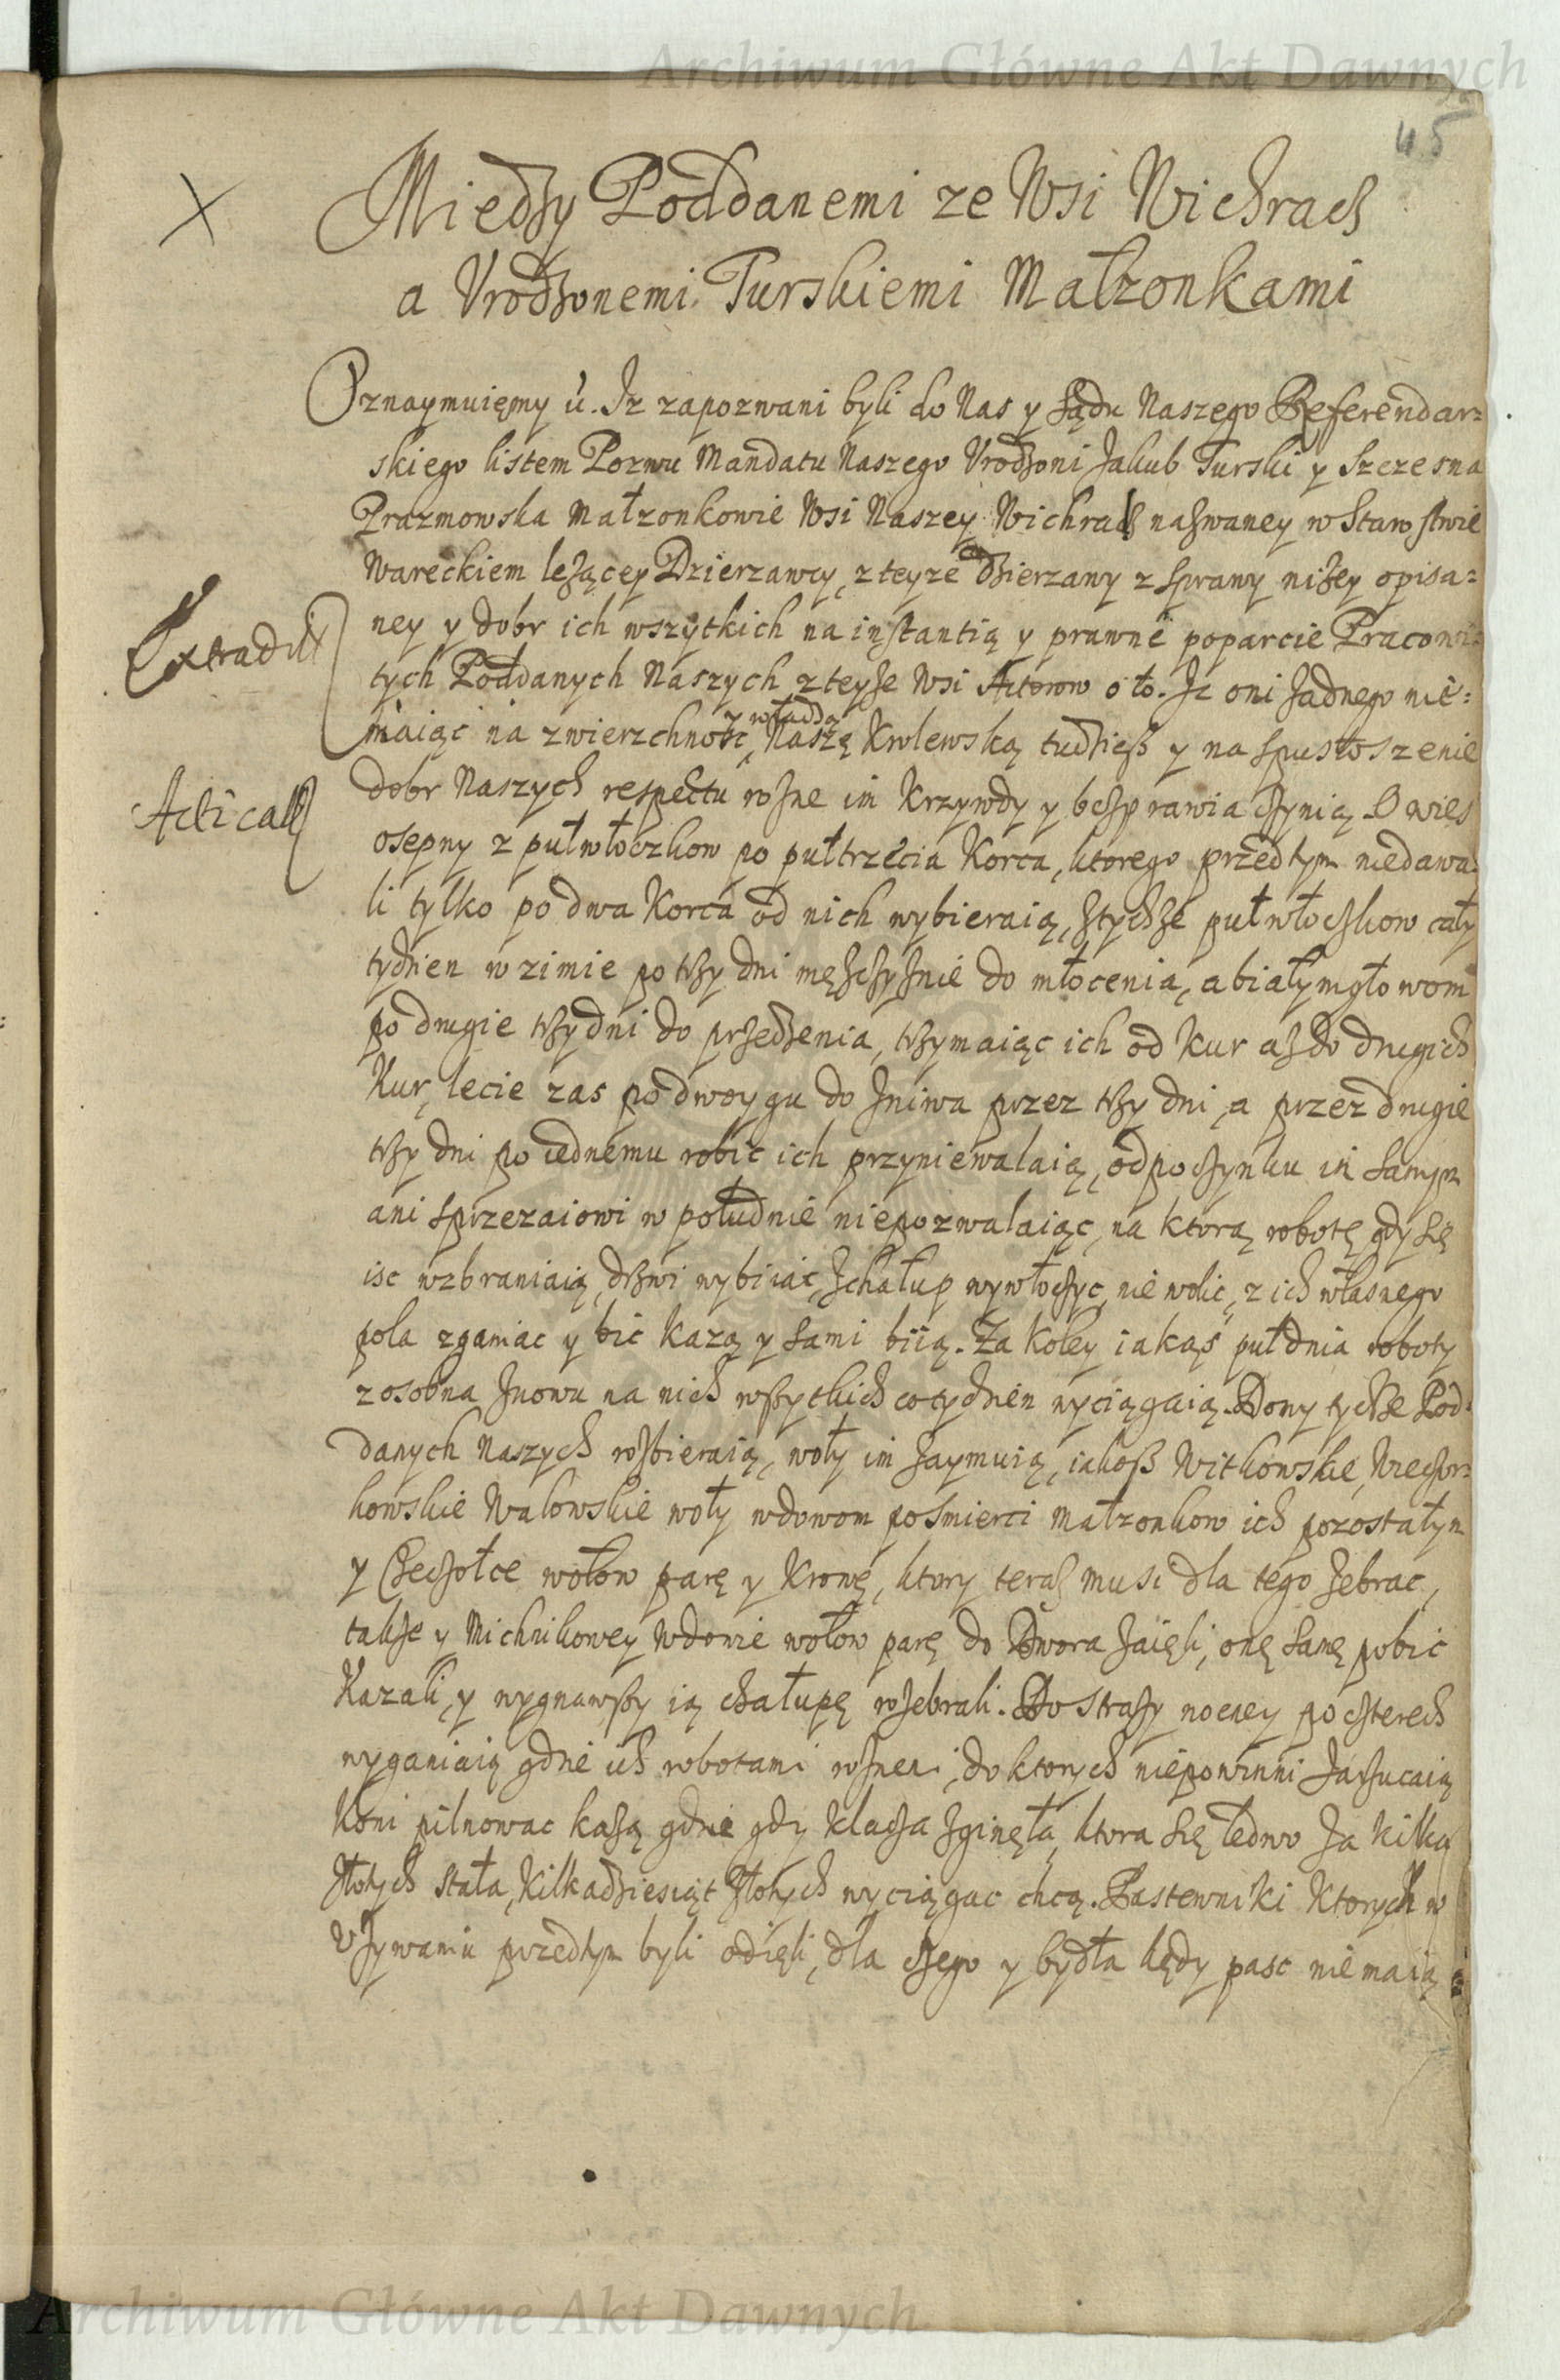 Archiwum Główne Akt Dawnych
45
Miedzy Poddanemi ze Wsi Wichrach
a Vrodzonemi Turskiemi Małzonkami
Oznaymuięmy ù. Iz zapozwani byli do Nas y sądu Naszego Referendar=
skiego listem Pozwu Mandatu Naszego Vrodzoni Jakub Turski y Szczesna
Prazmowska Małzonkowie Wsi Naszey Wichrach nazwaney w Starostwie
Wareckiem lezącey Dzierzawcy, z teyze dzierzawy z sprawy nizey opisa=
ney y dobr ich wszytkich na instantią y prawne poparcie Pracowi=
Extradit
tych Poddanych Naszych z teyze Wsi Actorow o to. Iz oni zadnego nie=
y władzą
maiąc na zwierzchnosc, Naszę Krolewską tudziesz y na spustoszenie
Acticat
dobr Naszych respectu rozne im Krzywdy y bezprawia czynią. Owies
osepny z pułwłoczkow po pułtrzecia Korca, ktorego przedtym niedawa=
li tylko po dwa Korca od nich wybieraią, z tychze pułwłoczkow cały
tydzien w zimie po trzy dni męzczyznie do młocenia, a białymgłowom
po drugie trzy dni do przedzenia, trzymaiąc ich od Kur az do drugich
Kur, lecie zas po dwoygu do zniwa przez trzy dni, a przez drugie
trzy dni po iednemu robic ich przyniewalaią, odpoczynku im samym
ani sprzezaiowi w południe niepozwalaiąc, na ktorą robotę gdy się
isc wzbraniaią, drzwi wybiiac, z chałup wywłoczyc, niewolic, z ich własnego
pola zganiac y bic kazą y sami biią. Za koley iakąs pułdnia roboty
z osobna znowu na nich wszytkich co tydzien wyciągaią. Domy tychze Pod=
danych Naszych rozbieraią, woły im zaymuią, iakosz Witkowskie, Wieczor=
kowskie Walowskie woły wdowom posmierci małzonkow ich pozostałym
y wołow parę y Krowę, ktory teraz musi dla tego zebrac,
takze y Michnikowey wdowie wołow parę do Dwora zaięli, onę samę pobic
Kazali, y wygnawszy ią chałupę rozebrali. Do strazy nocney po czterech
wyganiaią gdzie ich robotami roznemi, do ktorych niepowinni zarzucaią
Koni pilnowac kazą gdzie gdy klacza zginęła, ktora się ledwo za kilka
złotych stała, Kilkadziesiąt złotych wyciągac chcą. Pastewniki Ktorych w
Vzywaniu przedtym byli odięli, dla czego y bydła kędy pasc nie maią
Archiwum Główne Akt Dawnych